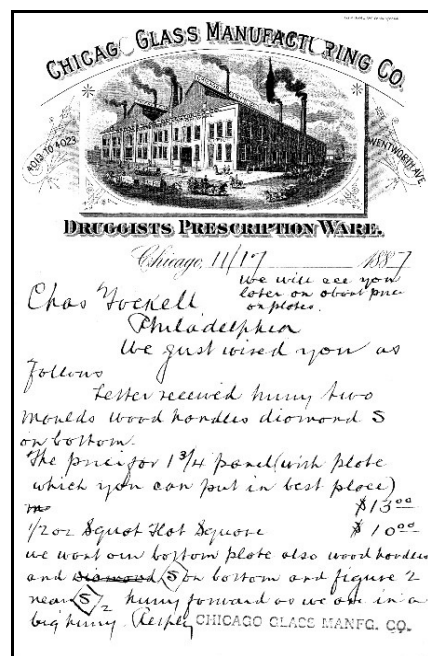 CHICAGO GLASS MANUFACTURING CO.
4013 TO 4023
WENTWORTH AVE.
DRUGGISTS PRESCRIPTION WARE.
Chicago, 11/17 1887
we will see you
later on about price
on plates.
Chas Yockell
Philadelphia
We just wired you as
follows
Letter received hurry two
moulds wood handles diamond S
on bottom.
The price for 1 3/4 panel (with plate
which you can put in best place)
$13 00
1/2 oz Squat Flat Square $10 00
we want our bottom plate also wood handles
and diamond S on bottom and figure 2
near S 2 hurry forward as we are in a
big hurry. Resply CHICAGO GLASS MANFG. CO.